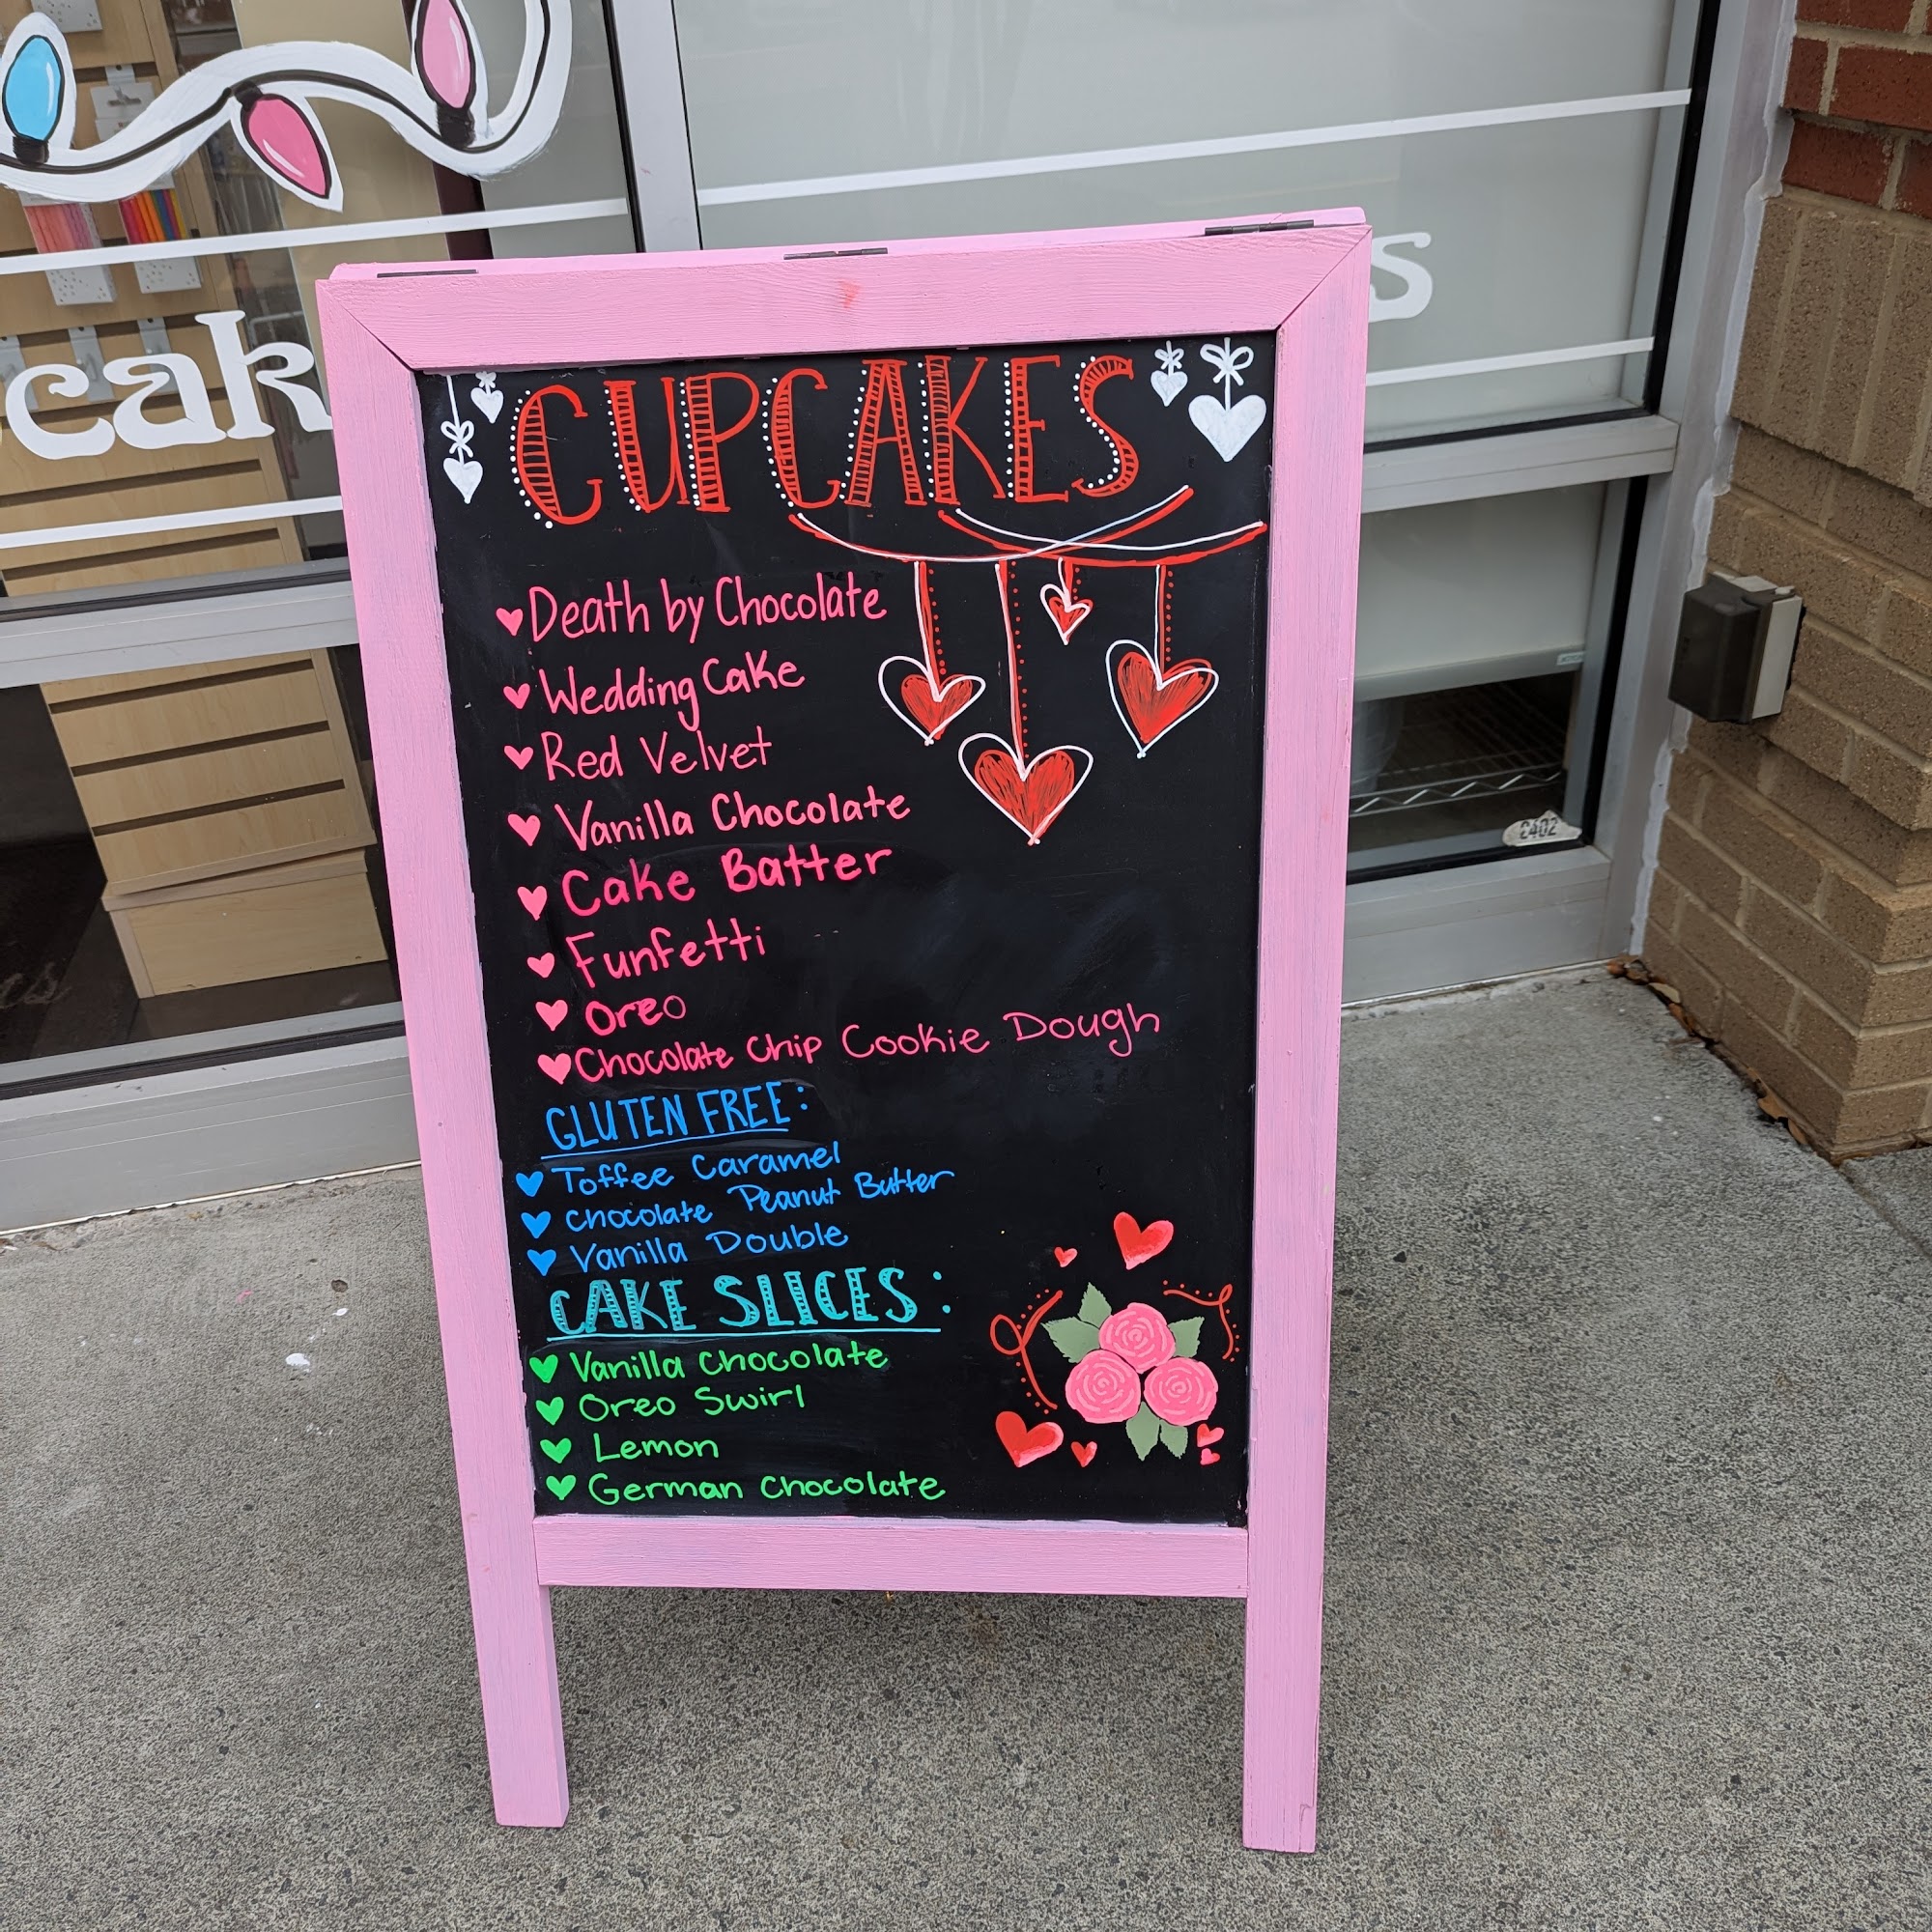 cak
s
CUPCAKES
Death by Chocolate
Wedding Cake
Red Velvet
Vanilla Chocolate
Cake Batter
Funfetti
Oreo
Chocolate Chip Cookie Dough
GLUTEN FREE:
Toffee Caramel
Chocolate Peanut Butter
Vanilla Double
CAKE SLICES:
Vanilla Chocolate
Oreo Swirl
Lemon
German Chocolate